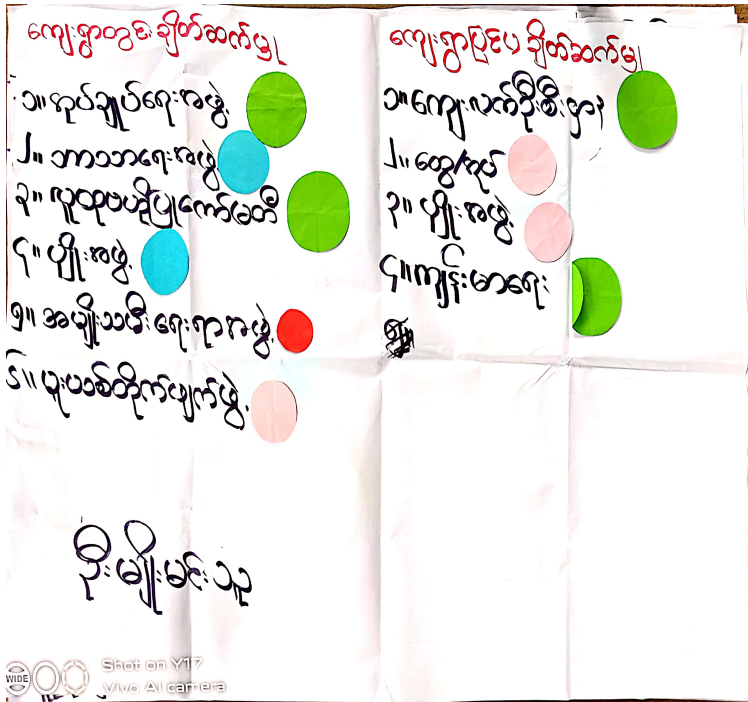 ကျေးရွာတွင်းချိတ်ဆက်မှု
၁။ အုပ်ချုပ်ရေးအဖွဲ့
၂။ ဘာသာရေးအဖွဲ့
၃။ လူထုဗဟိုပြုကော်မတီ
၄။ ပျိုးအဖွဲ့
၅။ အမျိုးသမီးရေးရာအဖွဲ့
၆။ မူးယစ်တိုက်ဖျက်ဖွဲ့
ဦးမျိုးမင်းသူ
ကျေးရွာပြင်ပ ချိတ်ဆက်မှု
၁။ ကျေးလက်ဦးစီးဌာန
၂။ ထွေ/အုပ်
၃။ ပျိုးအဖွဲ့
၄။ ကျန်းမာရေး
WIDE
Shot on Y17
Vivo AI camera